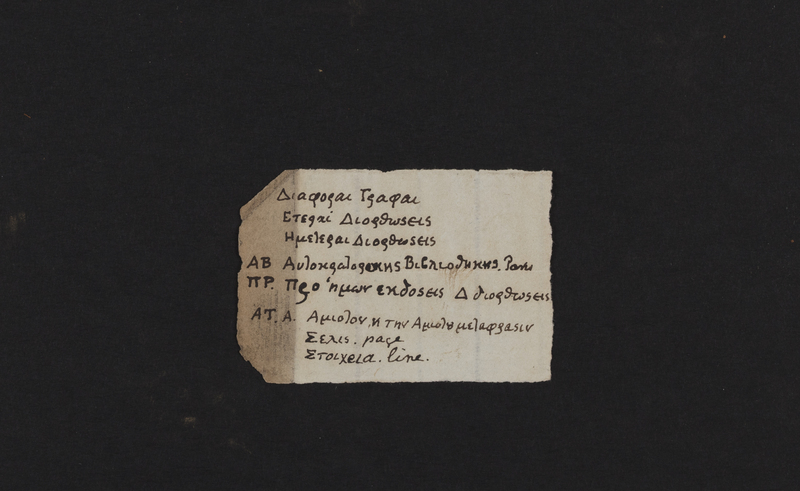 Διαφοραι Γραφαι
Ετεραι Διορθωσεις
Ημετεραι Διορθωσεις
ΑΒ Αυτοκρατορικης Βιβλιοθηκης. Paris
ΠΡ. Προ ἡμων εκδοσεις Δ διορθωσεις
ΑΤ. Α. Αμιοτον, η την Αμιοτου μεταφρασιν
Σελις. page
Στοιχεια. line.